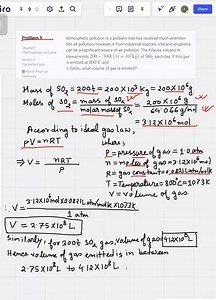 Problem 4
Chapter 5
The Properties of Gases
Section 5
Atmospheric pollution is a problem that has received much attention.
Not all pollution, however, is from industrial sources. Volcanic eruptions
can be a significant source of air pollution. The Kilauea volcano in
Hawaii emits 200 − 300t (1t = 10³kg) of SO₂ each day. If this gas
is emitted at 800°C and
1.0 atm, what volume of gas is emitted?
Mass of SO₂ = 200t = 200 X 10³ Kg = 200X10⁶g
Moles of SO₂ = mass of SO₂ / molar mass of SO₂ = 200 X 10⁶ g / 64.066 g/mol
= 3.12 X 10⁶ mol
According to ideal gas law,
pV = nRT
where,
⇒ V = nRT / P
P = pressure of gas = 1.0 atm
n = moles of gas = 3.12X10⁶ mol
R = gas constant = 0.0821 L atm/mol K
T = Temperature = 800°C = 1073 K
V = Volume of gas
∴ V = 3.12X10⁶ mol X 0.0821 L atm/mol K X 1073K / 1 atm
V = 2.75X10⁸ L
Similarly, for 300t SO₂ gas, volume of gas = 4.12X10⁸ L
Hence volume of gas emitted is in between
2.75X10⁸ L to 4.12X10⁸ L